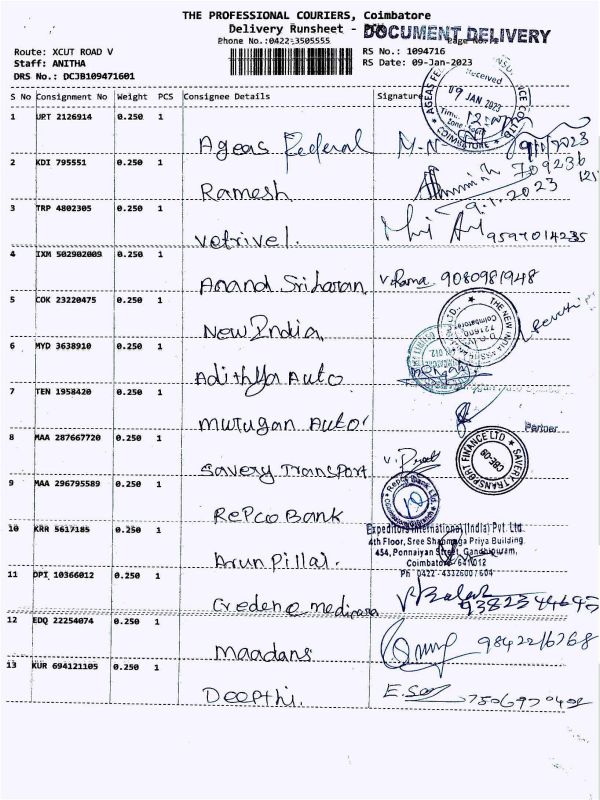 THE PROFESSIONAL COURIERS, Coimbatore
Delivery Runsheet -
DOCUMENT DELIVERY
Phone No.:0422-3505555
Route: XCUT ROAD V
RS No.: 1094716
Staff: ANITHA
RS Date: 09-Jan-2023
DRS No.: DCJB109471601
S No Consignment No Weight PCS Consignee Details Signature
1 URT 2126914 0.250 1 Ageas Federal M-N 9/1/2023
Received
09 JAN 2023
COIMBATORE
2 KDI 795551 0.250 1 Ramesh 709236
9.1.2023
3 TRP 4802305 0.250 1 Vetrivel. 9597014235
4 IXM 502902009 0.250 1 Anand Sriharan V.Rama 9080981948
5 COK 23220475 0.250 1 New India
THE NEW INDIA
721600
Coimbatore
6 MYD 3638910 0.250 1 Adithya Auto
7 TEN 1958420 0.250 1 Murugan Auto
Partner
8 MAA 287667720 0.250 1 Savery Transport
SAVERY TRANSPORT FINANCE LTD
CBE-09
9 MAA 296795589 0.250 1 Repco Bank
Repco Bank Ltd.
10 KRR 5617185 0.250 1 Arun Pillai.
Expeditors International (India) Pvt. Ltd.
4th Floor, Sree Shanmuga Priya Building,
454, Ponnaiyan Street, Gandhipuram,
Coimbatore - 641 012
11 DPI 10366012 0.250 1
9382344645
12 EDQ 22254074 0.250 1 Maadans 9842216768
13 KUR 694121105 0.250 1 Deepthi.